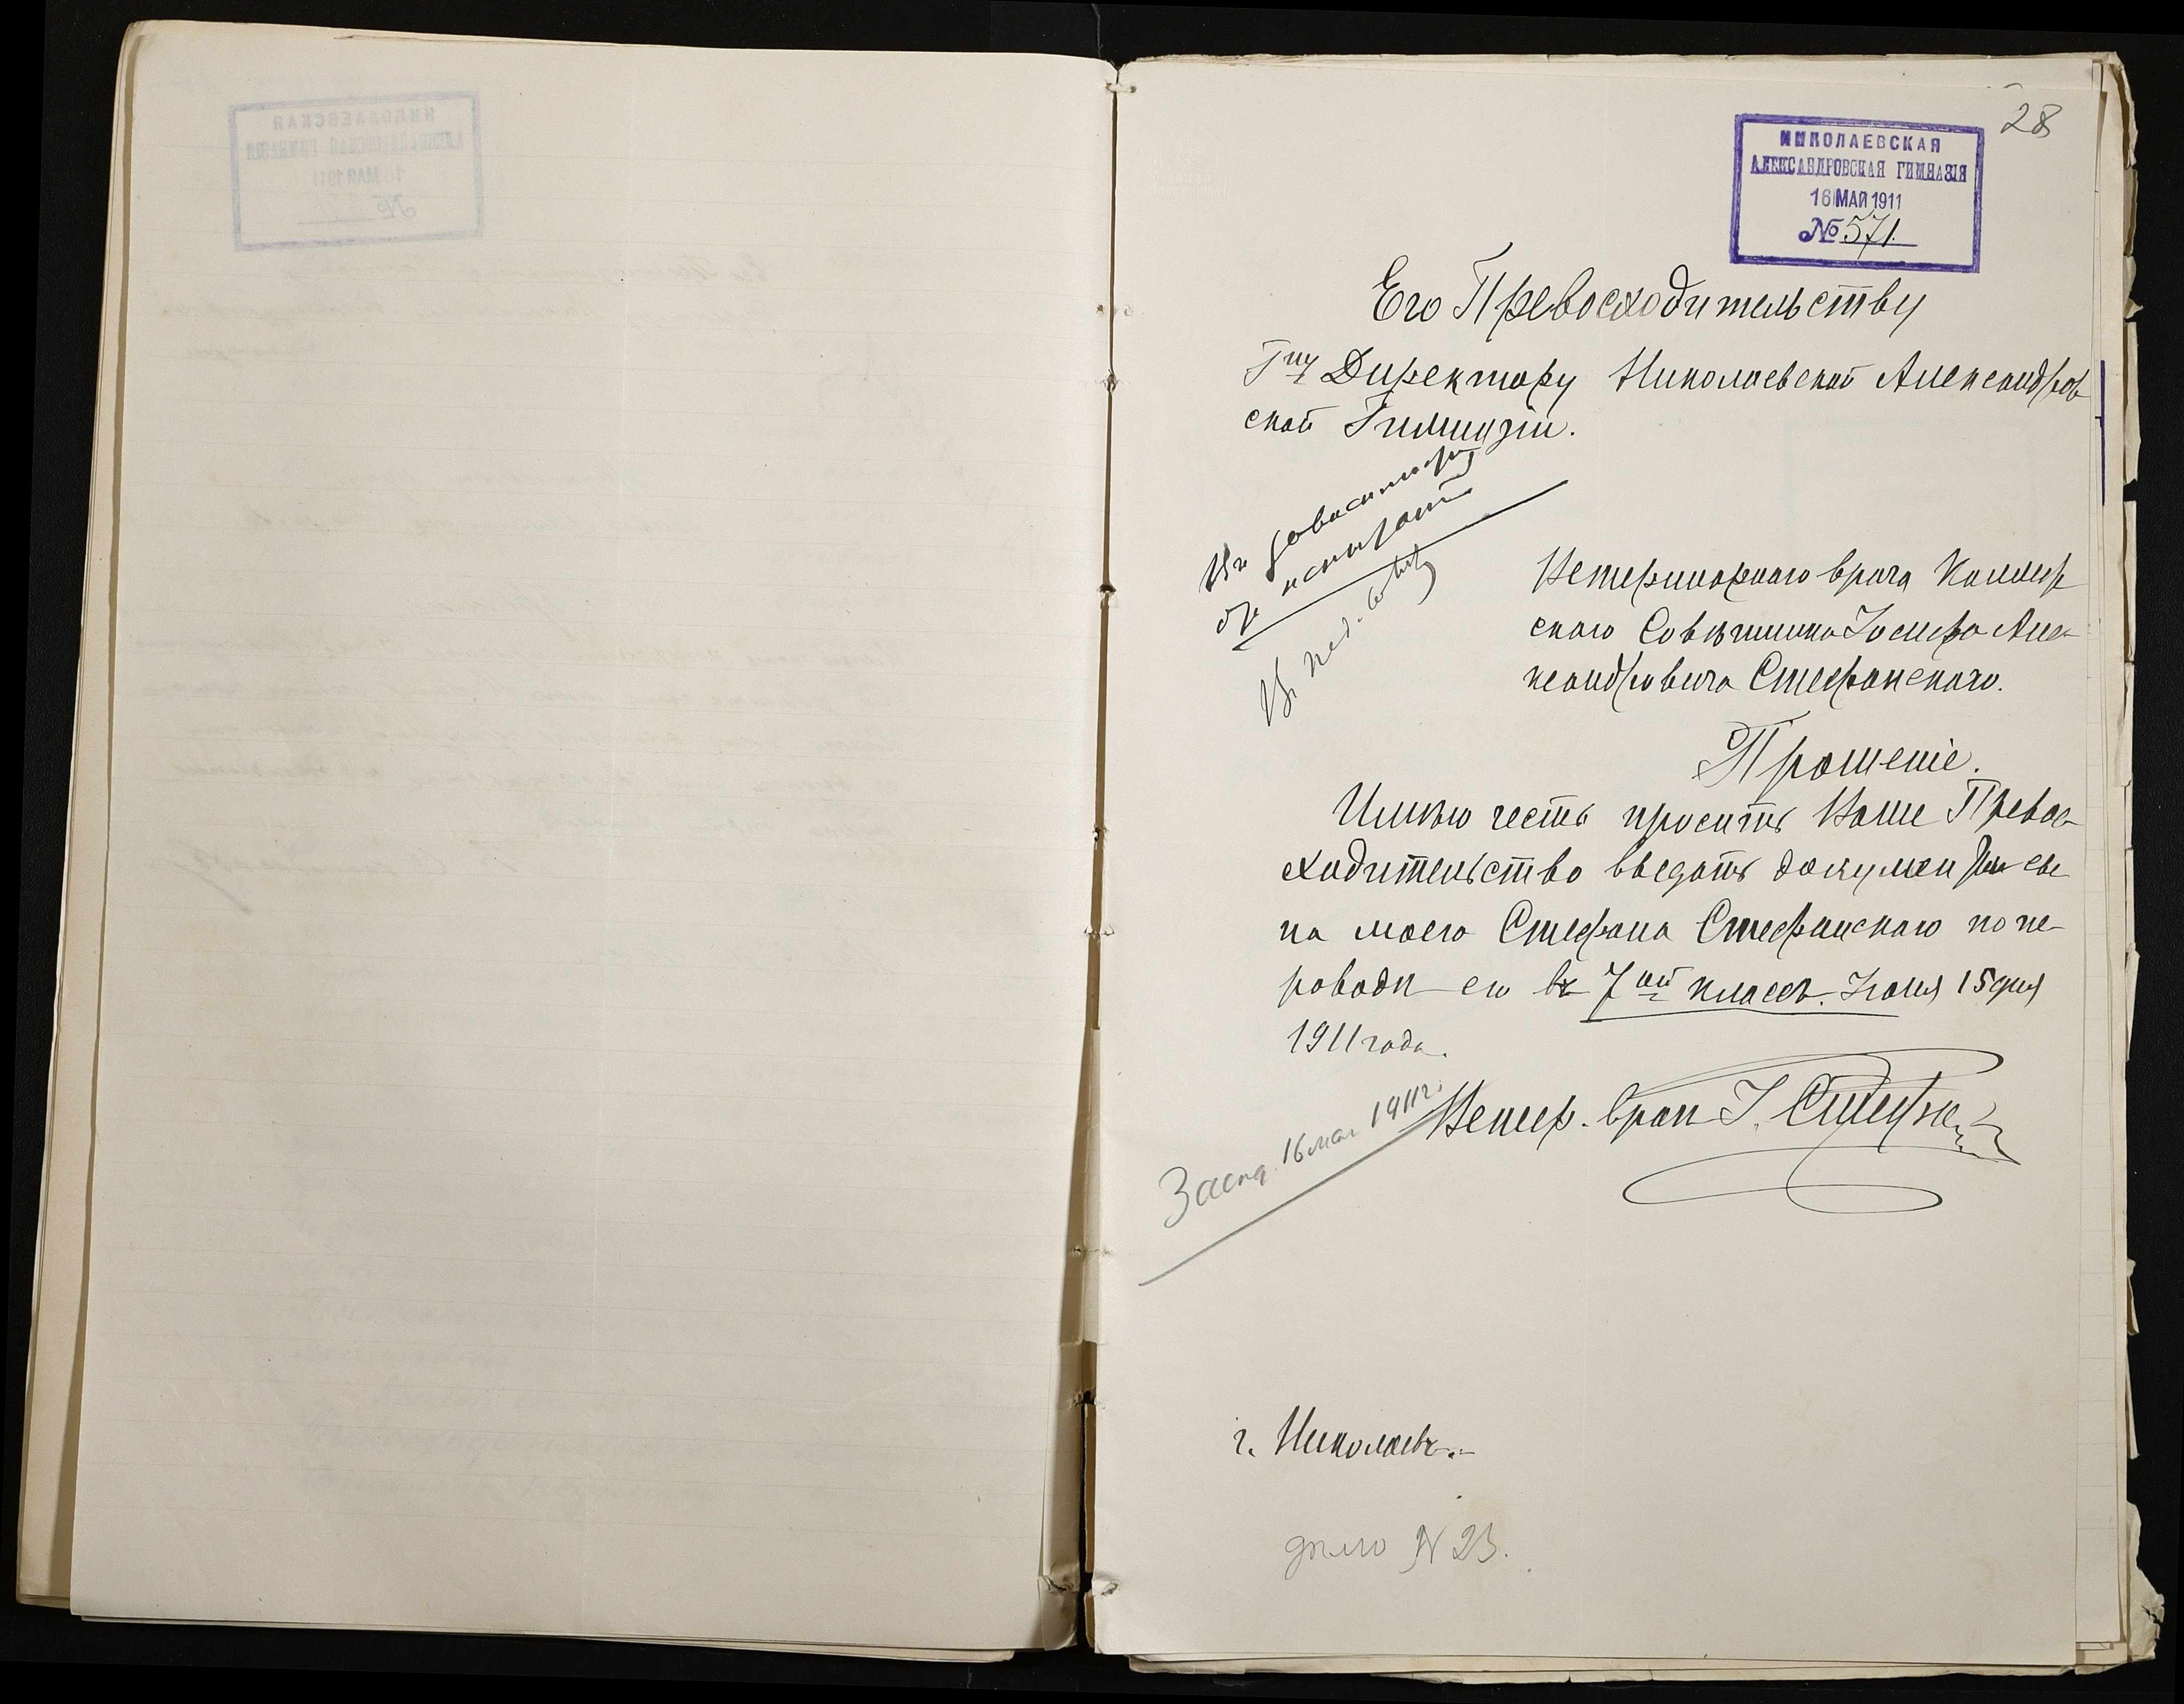 28
НИКОЛАЕВСКАЯ
АЛЕКСАНДРОВСКАЯ ГИМНАЗІЯ
16 МАЯ 1911
№ 571.
Его Превосходительству
Гну Директору Николаевской Александров
ской Гимназіи.
Ветеринарнаго врача Коллеж
скаго Совѣтника Іосифа Але-
ксандровича Стефанскаго.
Прошеніе.
Имѣю честь просить Ваше Превос-
ходительство выдать документы сы
на моего Стефана Стефанскаго по пе-
реводѣ его въ 7ой классъ. Іюня 15 дня
1911 года.
Ветер. врач І. Стефанскій
16 мая 1911 г.
г. Николаевъ.
дѣло N 23.